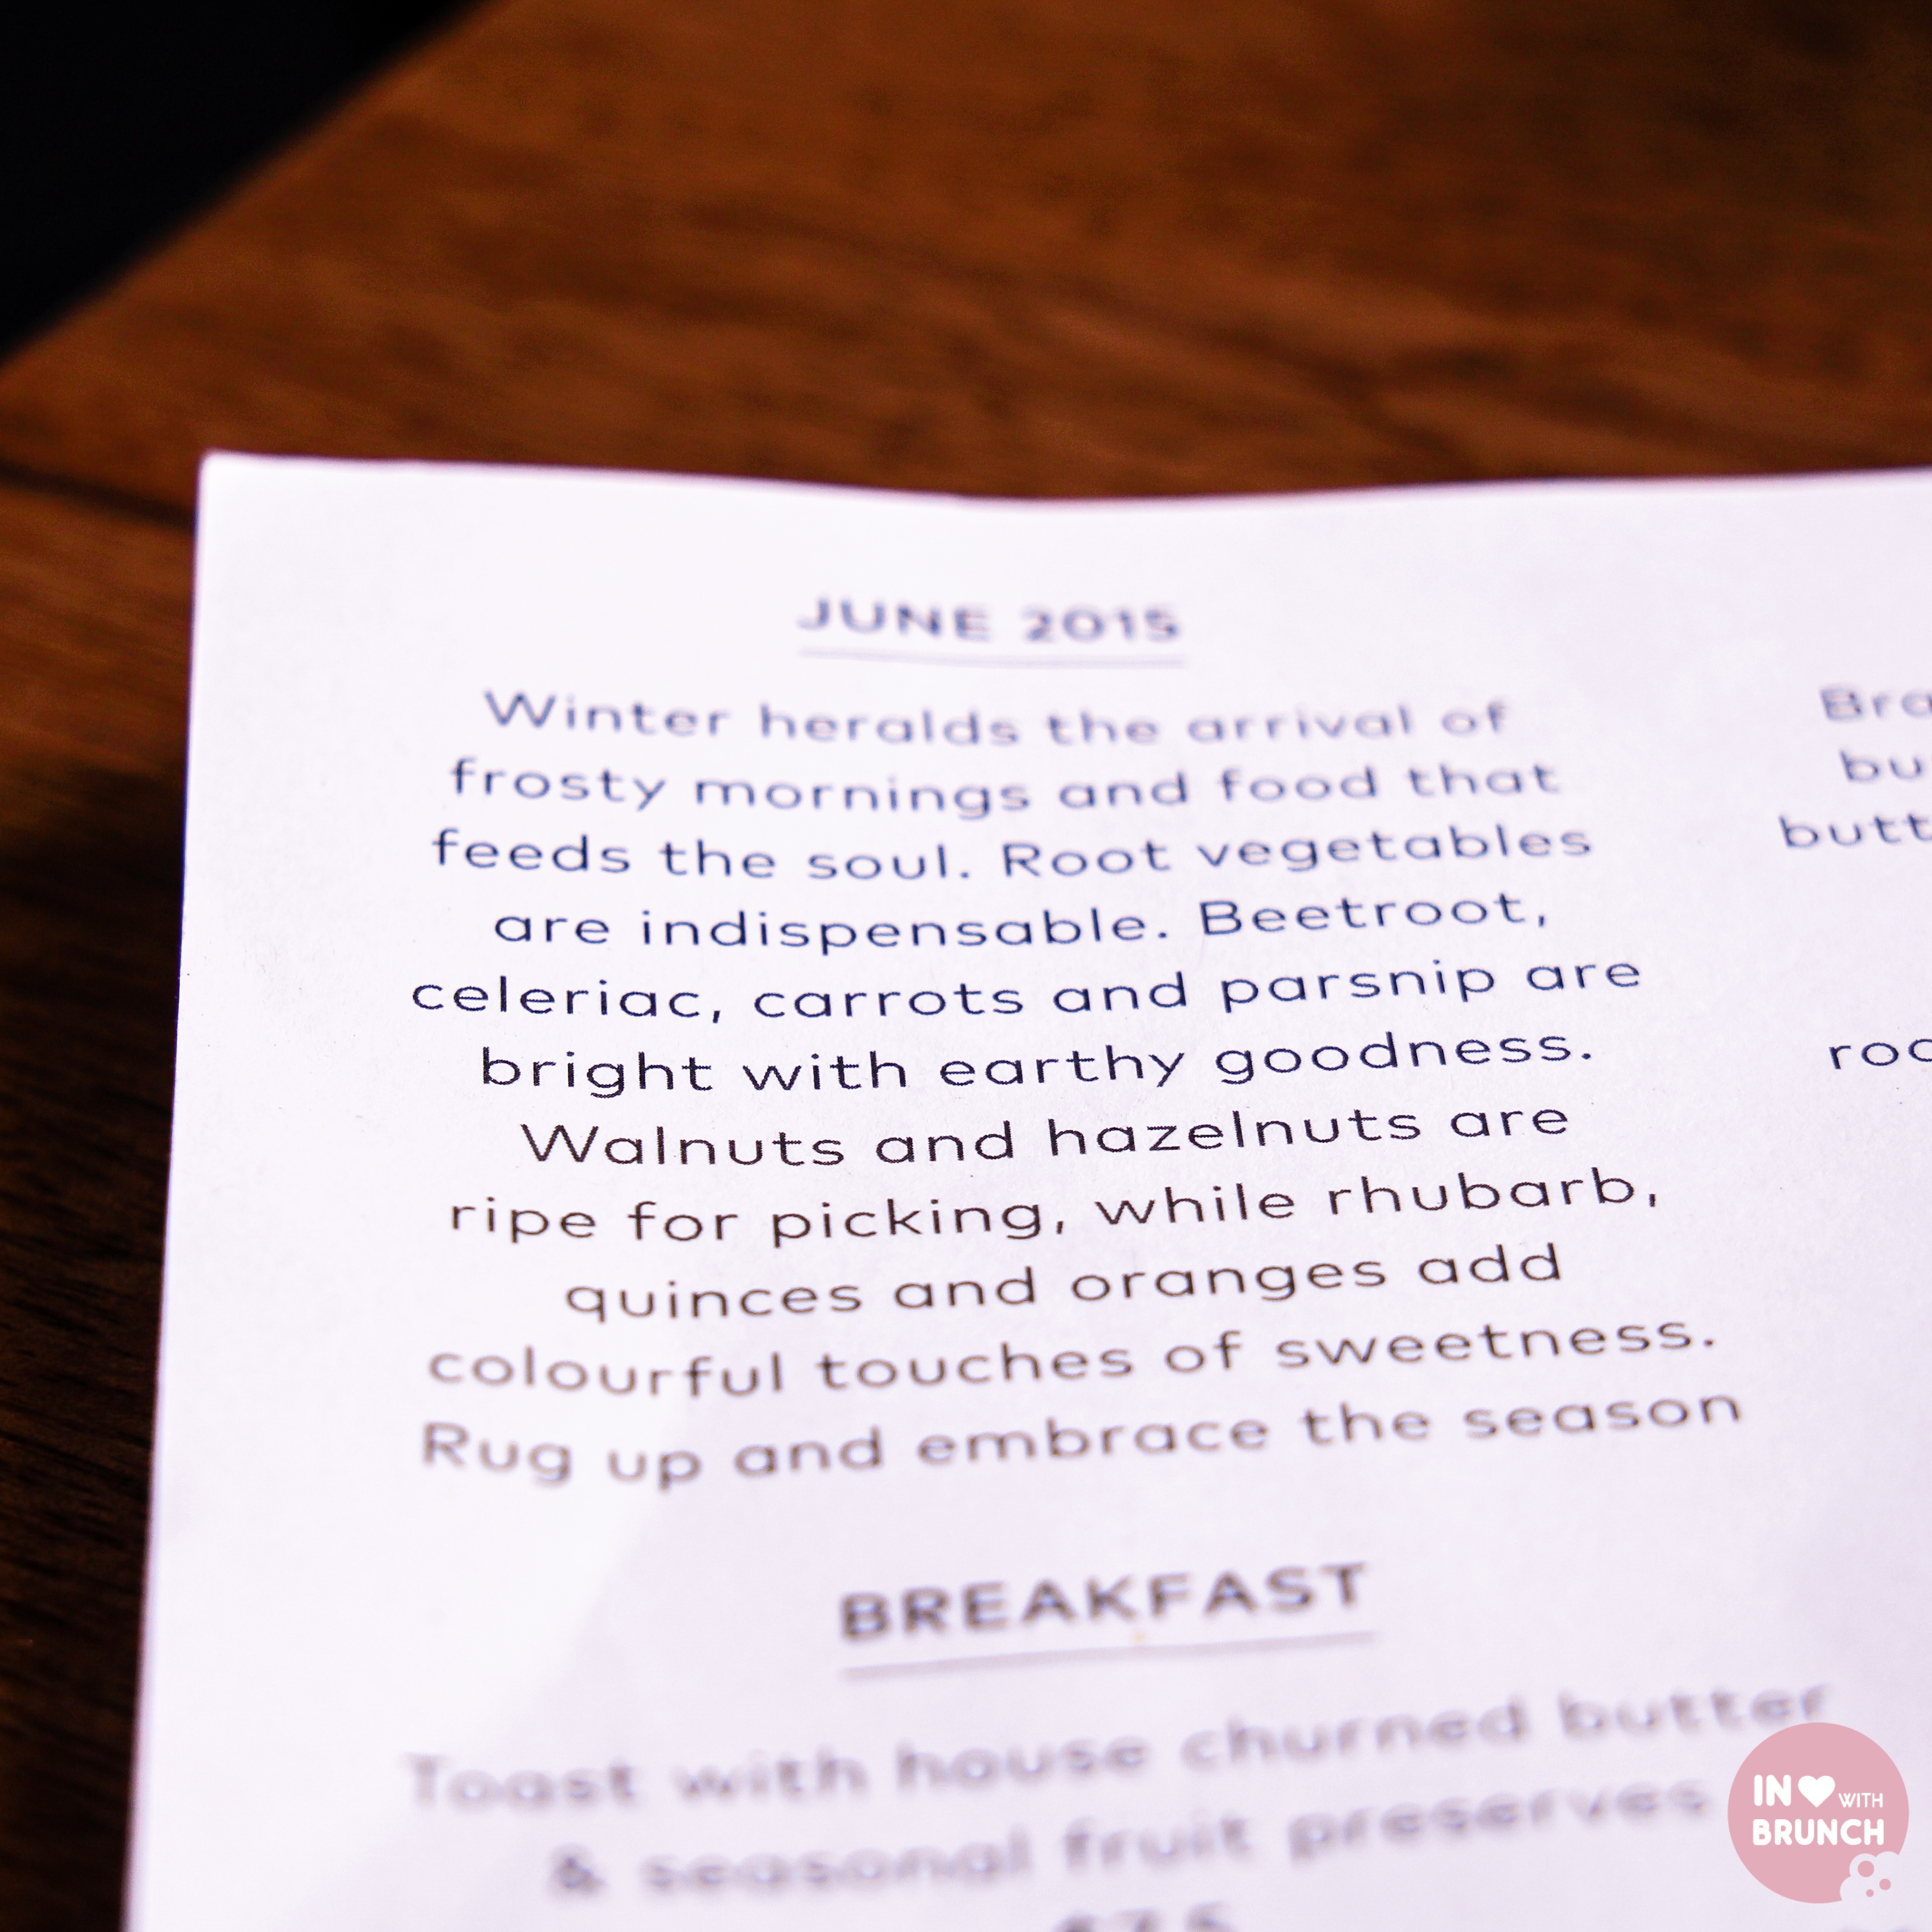 JUNE 2015
Winter heralds the arrival of
frosty mornings and food that
feeds the soul. Root vegetables
are indispensable. Beetroot,
celeriac, carrots and parsnip are
bright with earthy goodness.
Walnuts and hazelnuts are
ripe for picking, while rhubarb,
quinces and oranges add
colourful touches of sweetness.
Rug up and embrace the season
BREAKFAST
Toast with house churned butter
& seasonal fruit preserves
Bra
bu
butt
IN WITH
BRUNCH